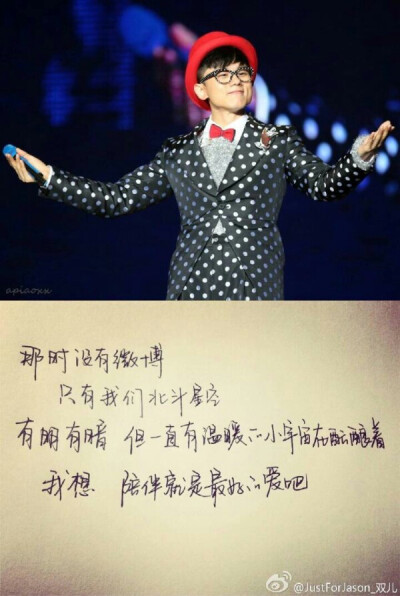 apiaoxx
那时没有微博
只有我们北斗星空
有明有暗 但一直有温暖的小宇宙在酝酿着
我想 陪伴就是最好的爱吧
@JustForJason_双儿